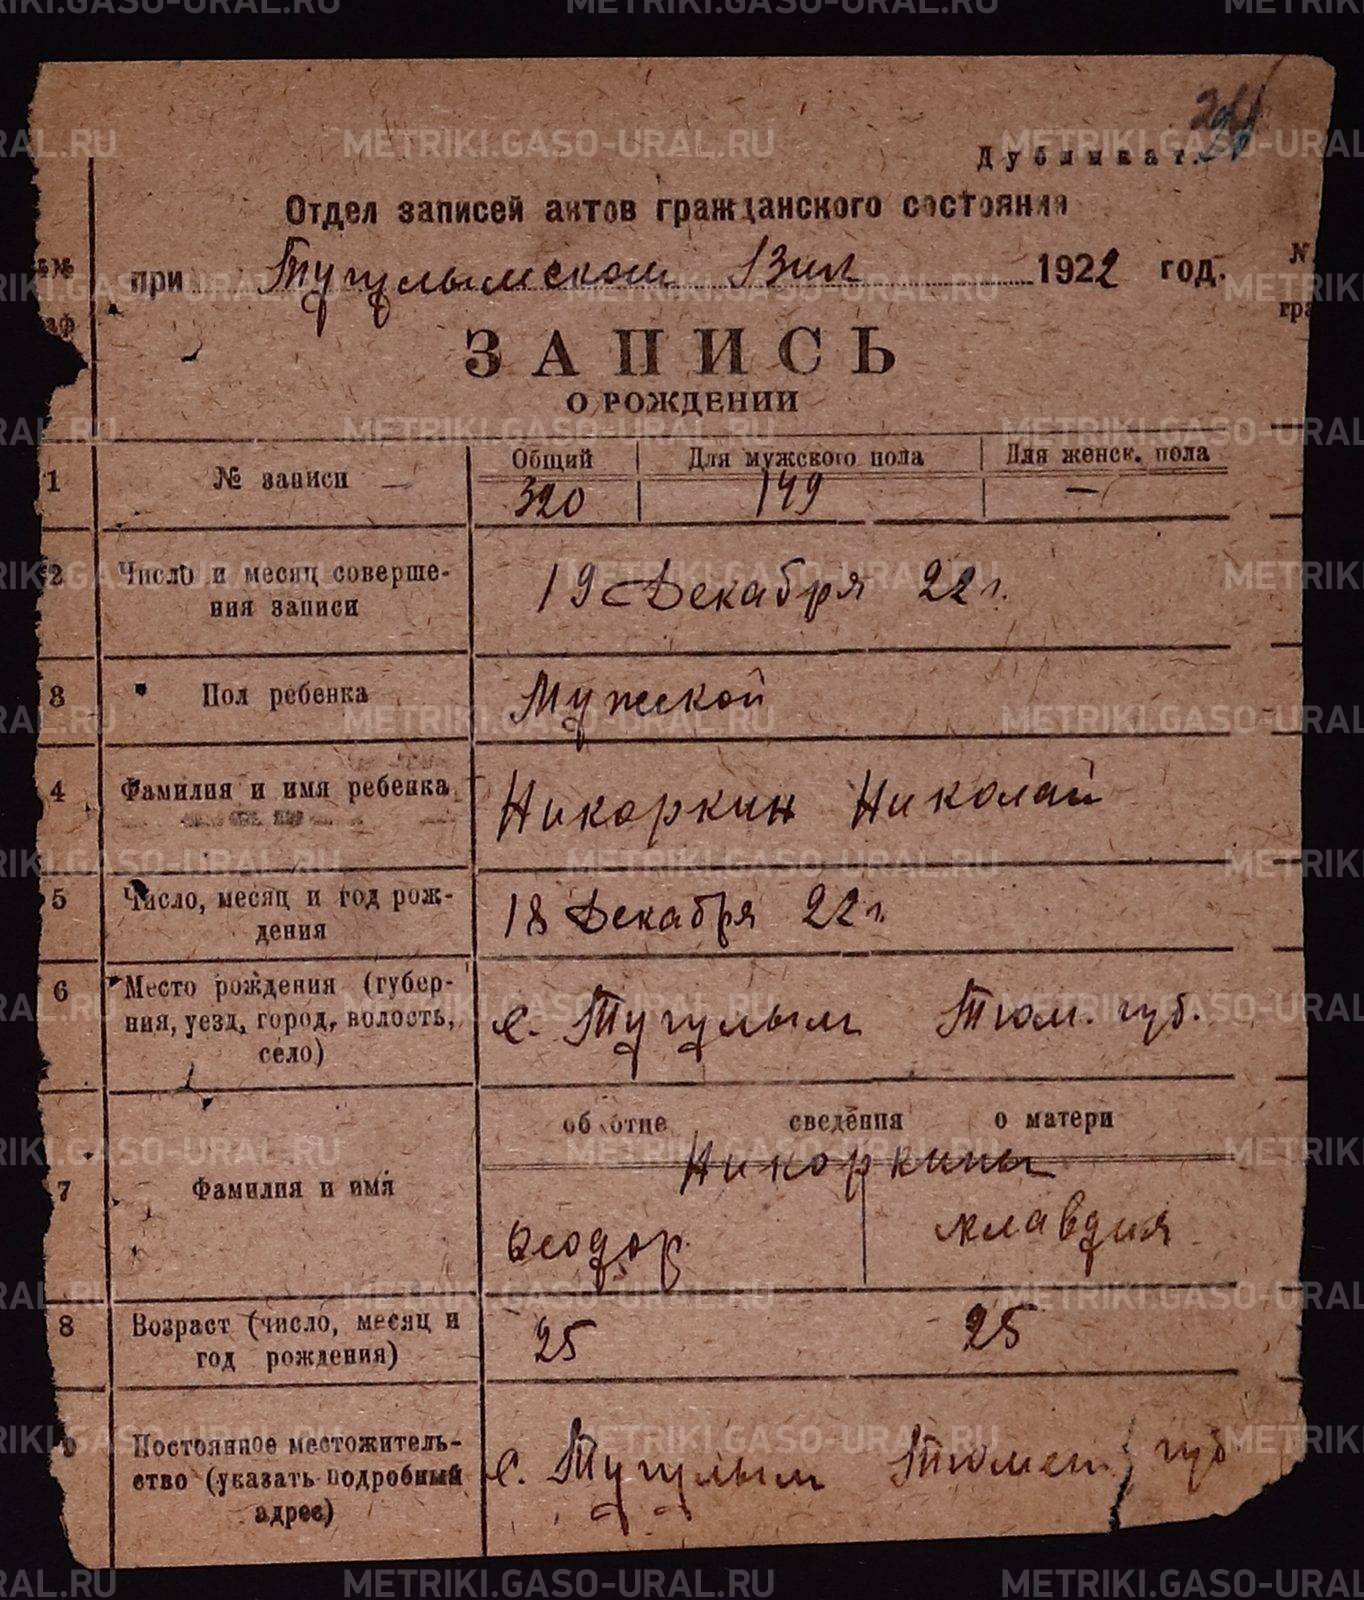 Дубликат.
Отдел записей актов гражданского состояния
№№ при Тугулымском Вик 1922 год. №
граф
ЗАПИСЬ
О РОЖДЕНИИ
1 № записи Общий Для мужского пола Для женск. пола
320 149 —
2 Число и месяц соверше-
ния записи 19 Декабря 22 г.
3 Пол ребенка Мужской
4 Фамилия и имя ребенка Никоркин Николай
5 Число, месяц и год рож-
дения 18 Декабря 22 г.
6 Место рождения (губер-
ния, уезд, город, волость, с. Тугулым Тюм. губ.
село)
об отце сведения о матери
Никоркины
7 Фамилия и имя
Феодор Клавдия
8 Возраст (число, месяц и
год рождения) 25 25
9 Постоянное местожитель-
ство (указать подробный с. Тугулым Тюмен. губ
адрес)
METRIKI.GASO-URAL.RU